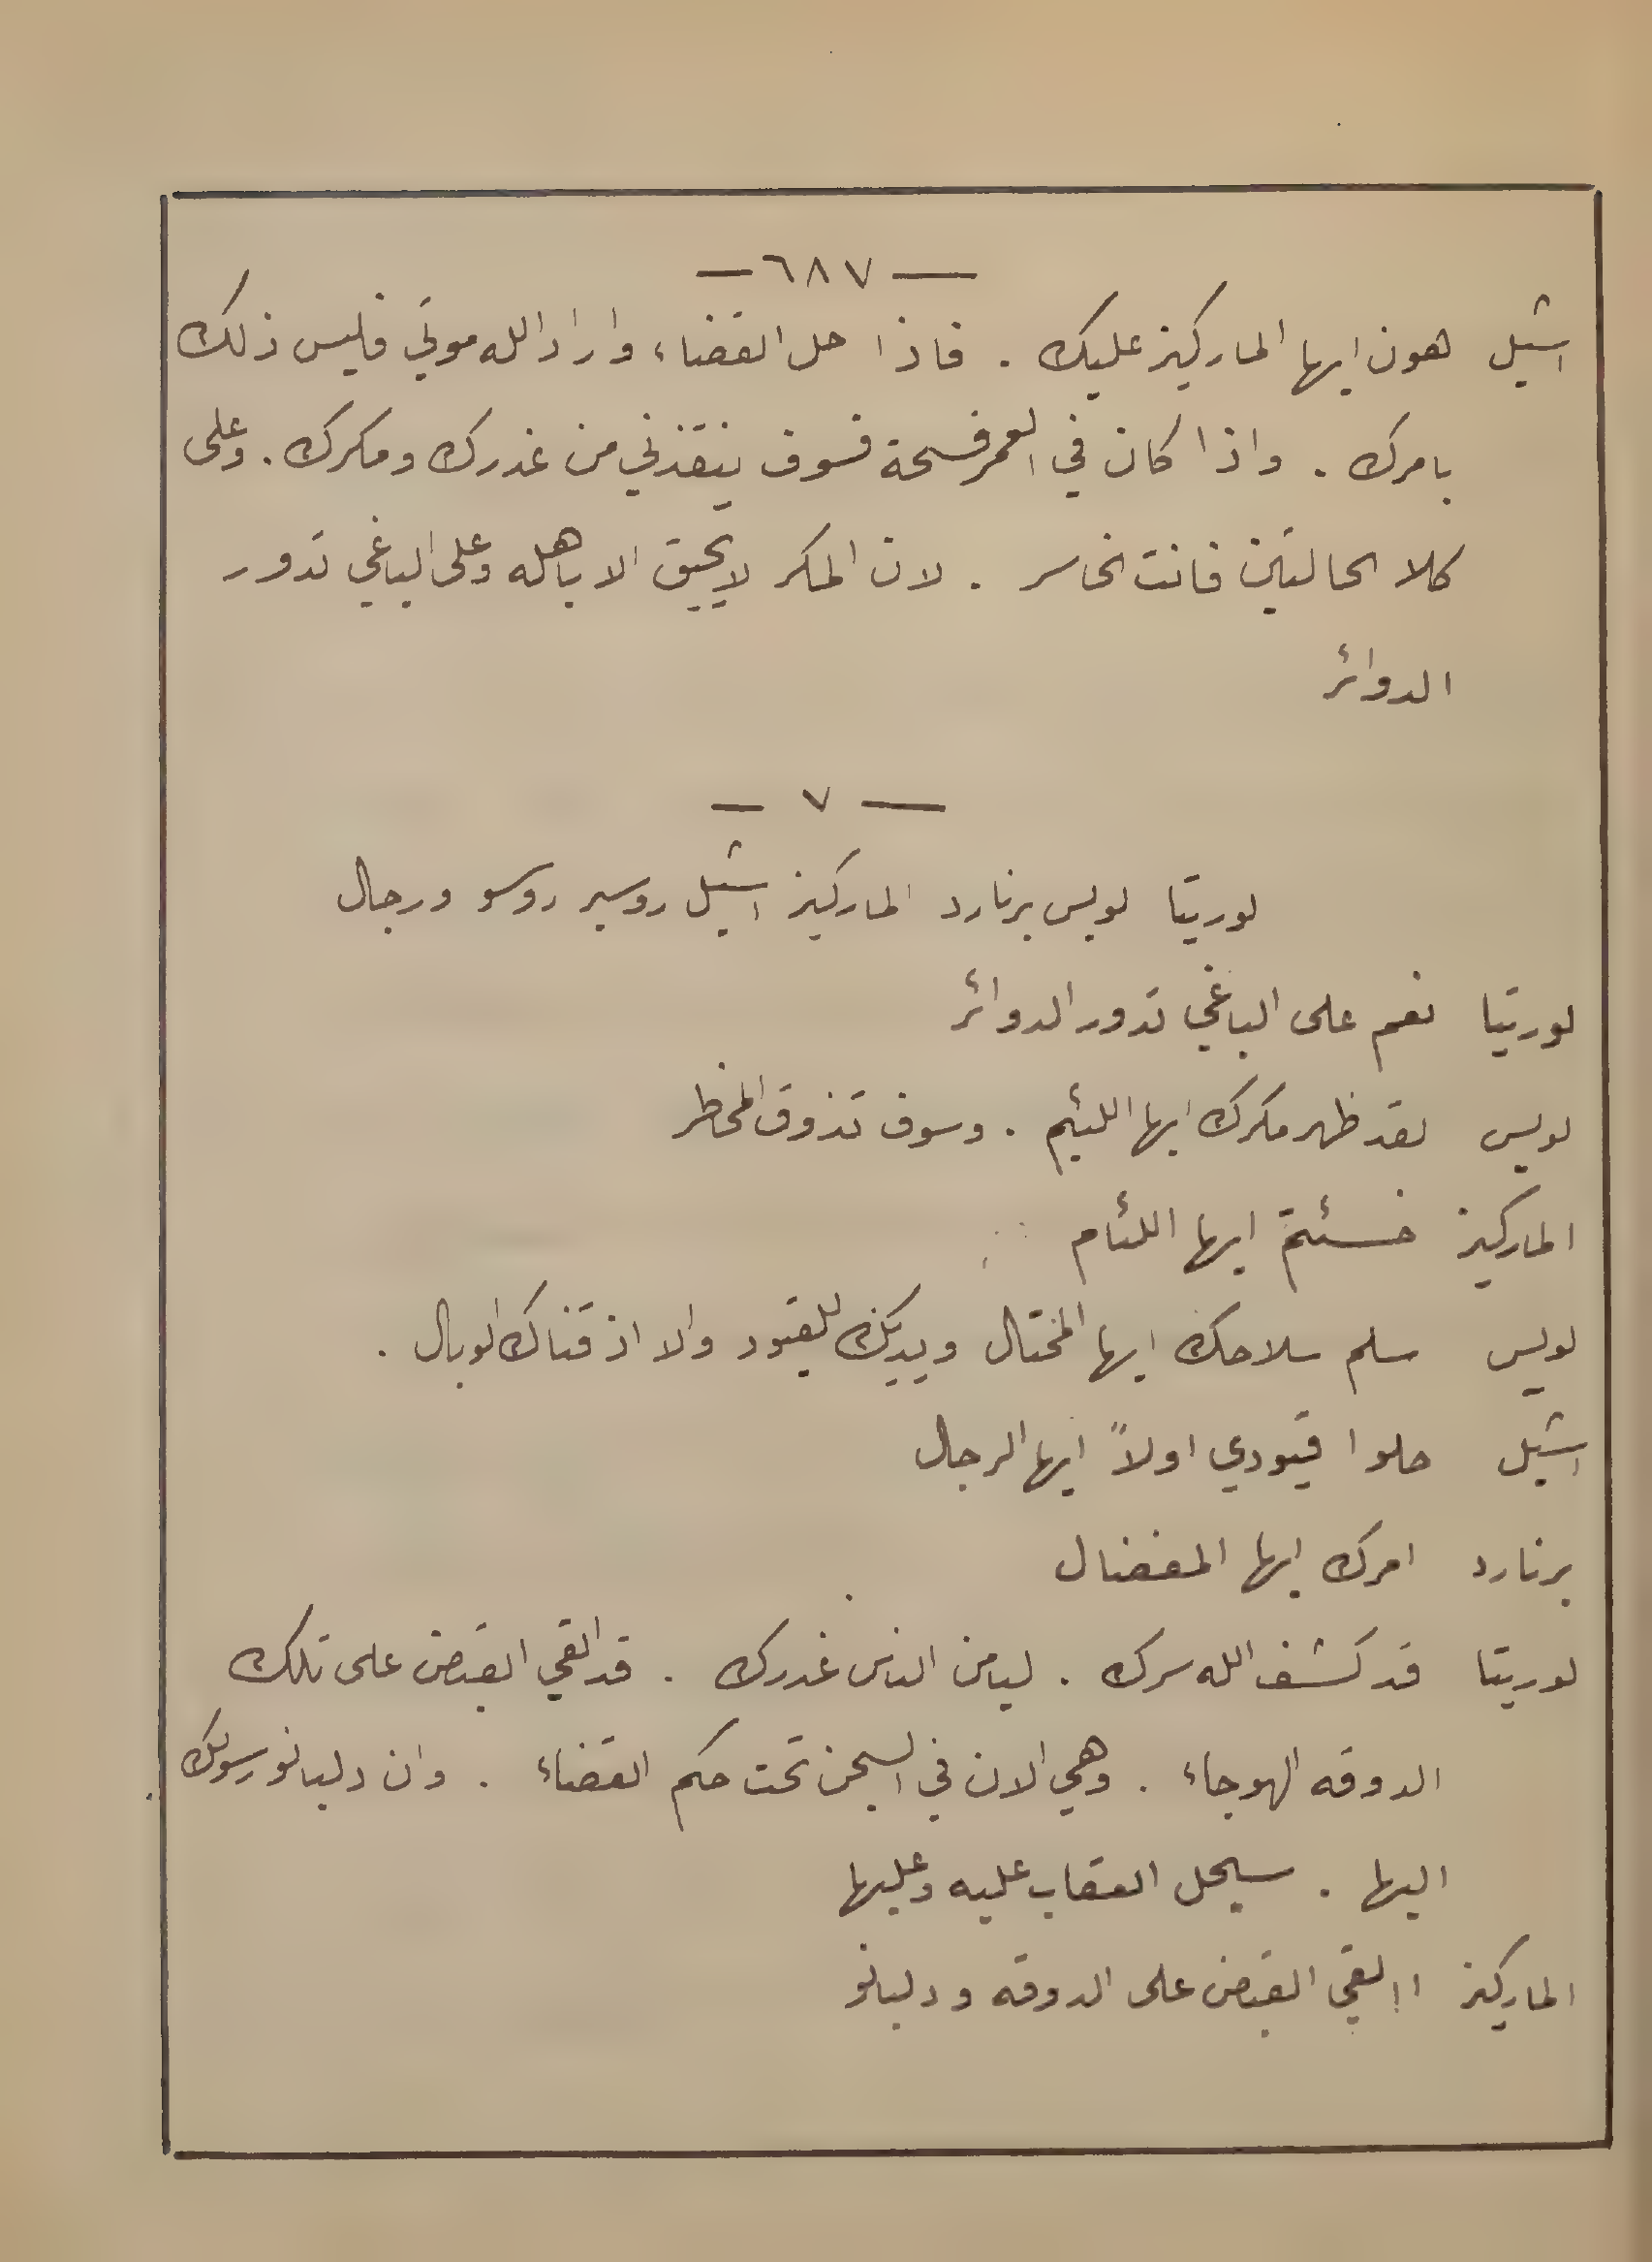 — ٦٨٧ —
اشيل هون ايها الماركيز عليك . فاذا حل القضاء واراد الله موتي فليس ذلك
بامرك . واذا كان في العمر فسحة فسوف ينقذني من غدرك ومكرك . وعلى
كلا الحالتين فانت الخاسر . لان المكر لا يحيق الا باهله وعلى الباغي تدور
الدوائر
— ٧ —
لوريتا لويس برنارد الماركيز اشيل روسير روسو ورجال
لوريتا نعم على الباغي تدور الدوائر
لويس لقد ظهر مكرك ايها اللئيم . وسوف تذوق المخاطر
الماركيز خسئتم ايها اللئام
لويس سلم سلاحك ايها المختال ويديك للقيود والا اذقناك الوبال .
اشيل حلوا قيودي اولاً ايها الرجال
برنارد امرك ايها المفضال
لوريتا قد كشف الله سرك . ليامن الناس غدرك . قد القي القبض على تلك
الدوقه الهوجاء . وهي الان في السجن تحت حكم القضاء . وان دلبانو رسولك
اليها . سيحل العقاب عليه وعليها
الماركيز االقي القبض على الدوقه ودلبانو